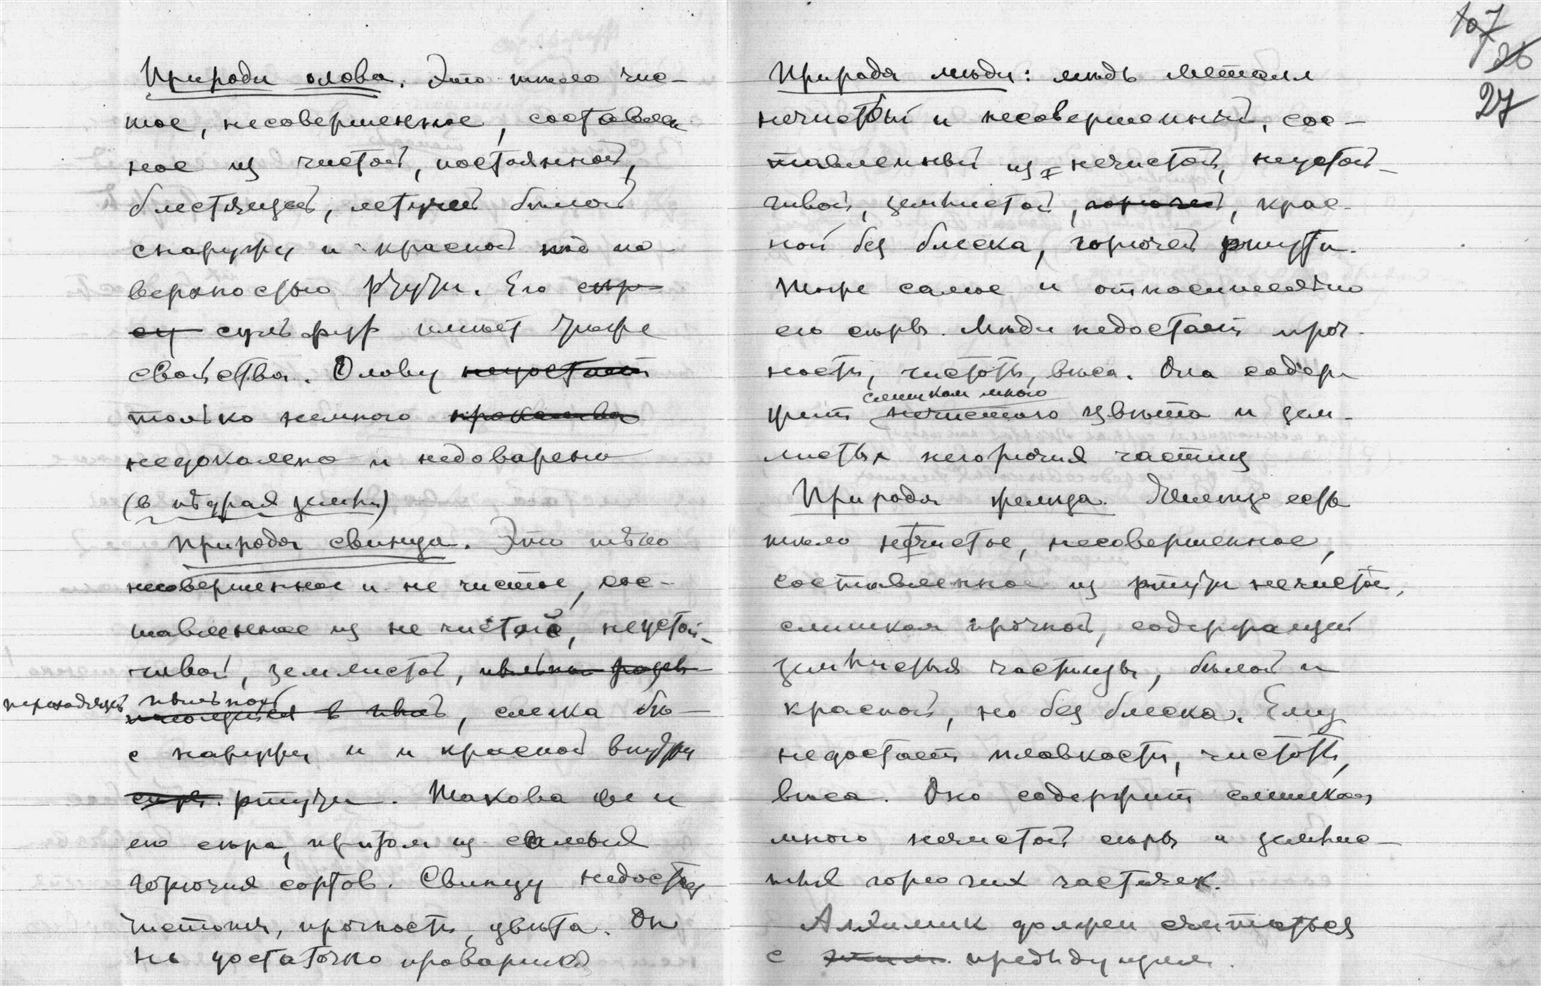 Природа олова. Это тело чис-
тое, несовершенное, составлен
ное из чистой, постоянной,
блестящей, летучей белой
снаружи и красной под по
верхностью ртути. Его сер
ег сульфур имеет также
свойства. Олову недостает
только немного прокалива
недокалено и недоварено
(в нѣдрах земли)
Природа свинца. Это тѣло
несовершенное и не чистое, сос-
тавленное из не чистой, неустой-
чивой, землистой,
переходящей в пыль, слегка бѣ-
с наружи и и красной внутри
ртути. Такова же и
его сера, притом из самых
горючих сортов. Свинцу недостает
чистоты, прочности, цвѣта. Он
не достаточно проварился
107
26
27
Природа мѣди: мѣдь металл
нечистый и несовершенный, сос-
тавленный из нечистой, неустой-
чивой, землистой, горючей, крас-
ной без блеска, горючей ртути.
Тоже самое и относительно
его серы. Мѣди недостает проч-
ности, чистоты, вѣса. Она содер
жит нечистого цвѣта и зем-
слишком много
листых негорючих частиц
Природа желѣза. Желѣзо есть
тѣло нечистое, несовершенное,
составленное из ртути нечистой,
слишком прочной, содержащей
землистыя частицы, бѣлой и
красной, но без блеска. Ему
недостает плавкости, чистоты,
вѣса. Оно содержит слишком
много нечистой серы и землис-
тых горючих частичек.
Алхимик должен считаться
с предыдущим.